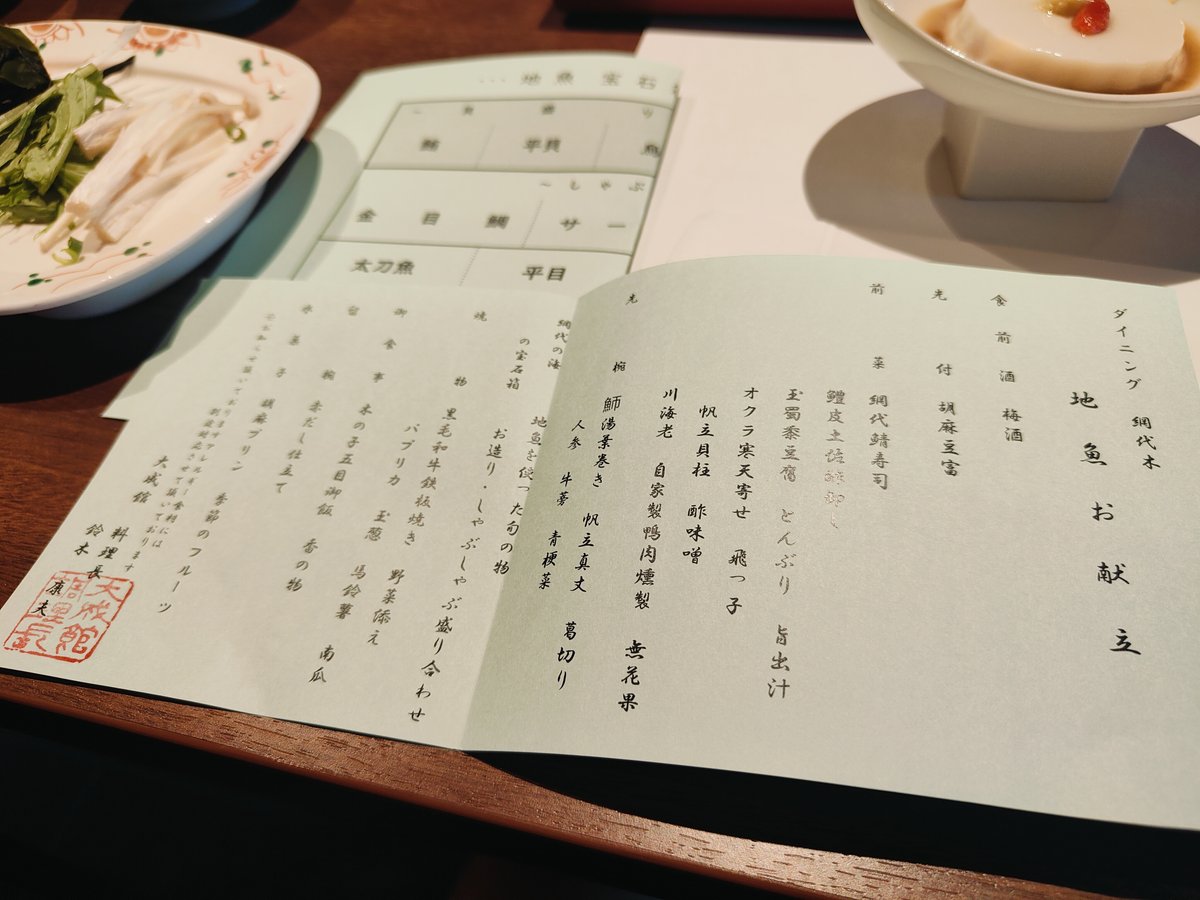 ダイニング 網代木
地魚お献立
食前酒 梅酒
先付 胡麻豆富
前菜 網代鯖寿司
鱧皮土佐酢卸し
玉蜀黍豆腐 どんぶり 旨出汁
オクラ寒天寄せ 飛っ子
帆立貝柱 酢味噌
川海老 自家製鴨肉燻製 無花果
先椀 鰤湯葉巻き 帆立真丈 葛切り
人参 牛蒡 青梗菜
網代の海の宝石箱 地魚を使った旬の物
お造り・しゃぶしゃぶ盛り合わせ
焼物 黒毛和牛鉄板焼き 野菜添え
パプリカ 玉葱 馬鈴薯 南瓜
御食事 木の子五目御飯 香の物
留椀 赤だし仕立て
水菓子 胡麻プリン 季節のフルーツ
大成館 料理長
鈴木 康夫
大成館
地魚 宝石
鮪 平貝 魚
金目鯛 サー
太刀魚 平目